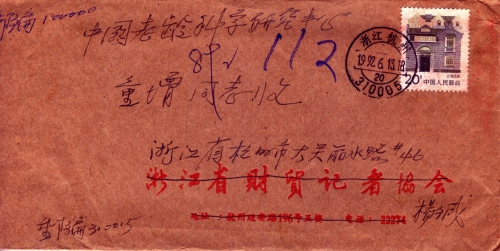 邮编 100000
中国老龄科学研究中心
112
董增同志收
浙江杭州
1992.6.13.18
20
310005
20分
中国人民邮政
浙江省杭州市大关丽水路#46
浙江省财贸记者协会
地址：杭州延安路196号三楼 电话：22274
邮编310015